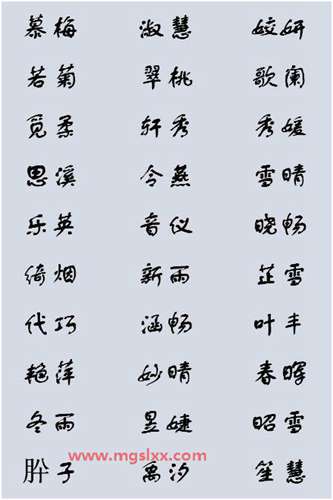 慕梅 淑慧 姣妍
若菊 翠桃 歌阑
觅柔 轩秀 秀媛
思溪 令燕 雪晴
乐英 音仪 晓畅
绮烟 新雨 芷雪
代巧 涵畅 叶丰
艳萍 妙晴 春晖
冬雨 昱婕 昭雪
www.mgslxx.com
子 禹汐 笙慧